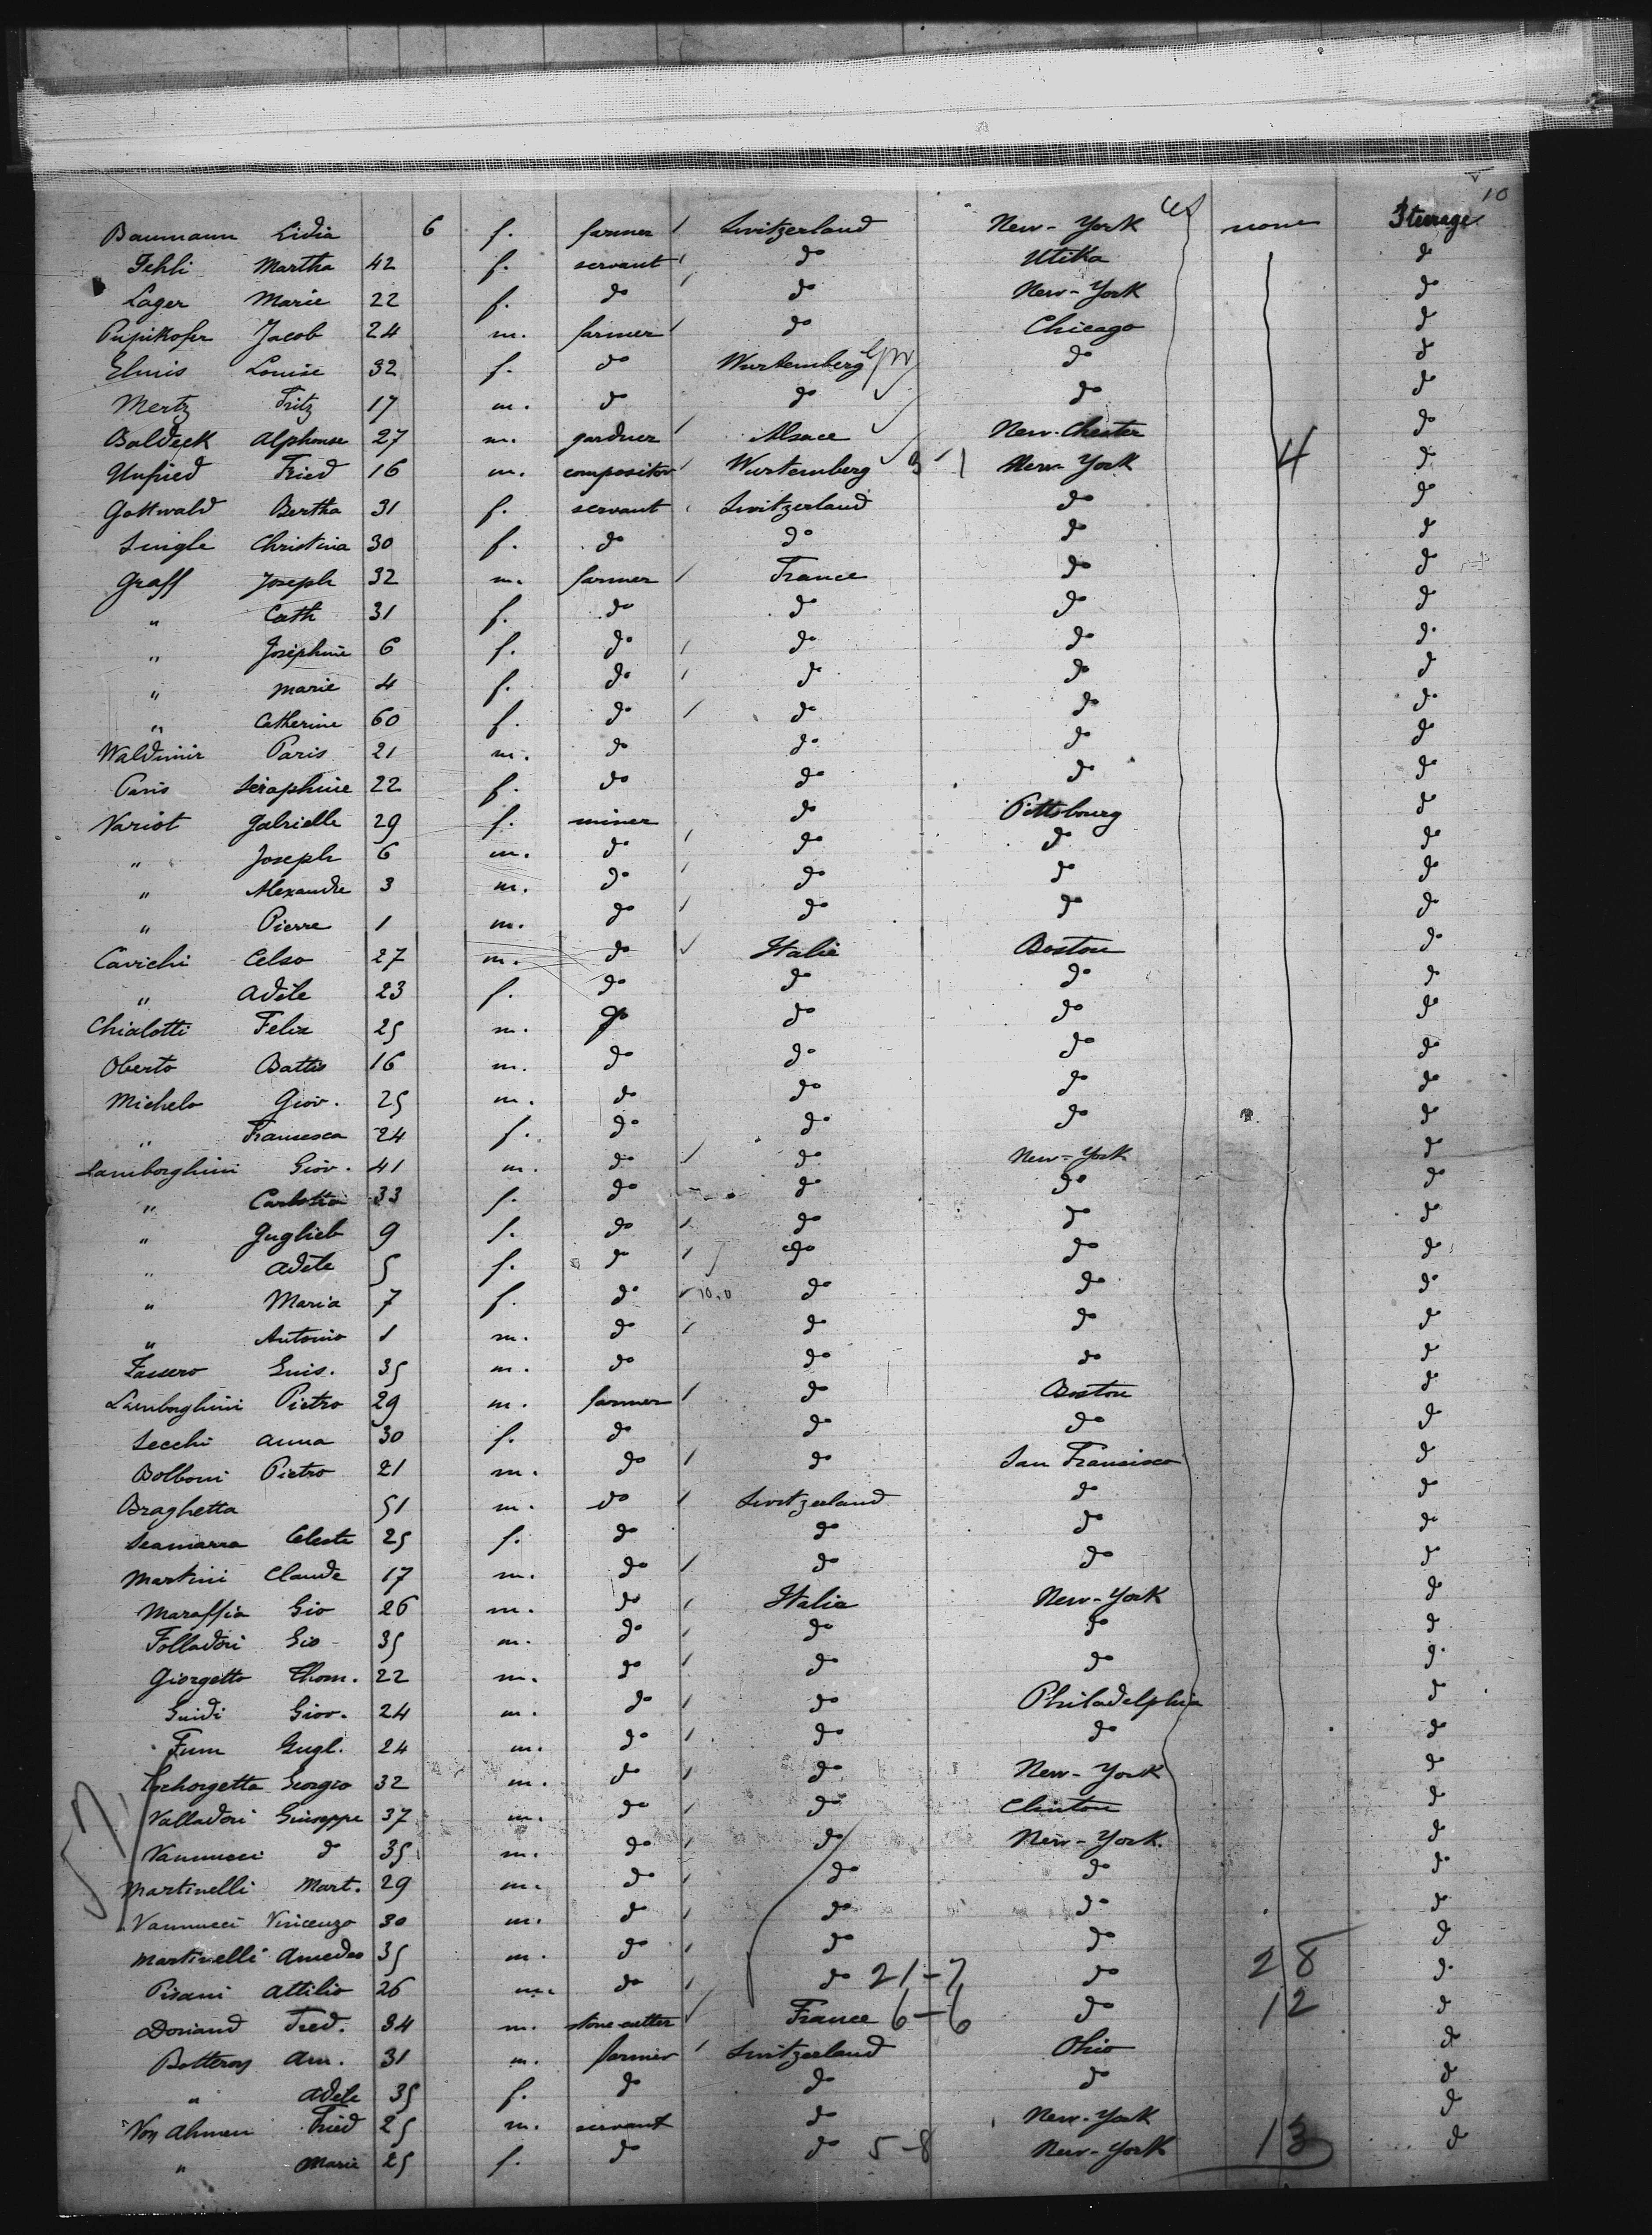 10
Baumann Lidia 6 f. farmer Switzerland New-York none Steerage
Fehli Martha 42 f. servant do Utika do
Lager Marie 22 f. do do New-York do
Pupikofer Jacob 24 m. farmer do Chicago do
Elmis Louise 32 f. do Wurtemberg do do
Mertz Fritz 17 m. do do do do
Baldeck Alphonse 27 m. gardner Alsace New-Chester do
Unfried Fried 16 m. compositor Wurtemberg New-York 4 do
Gottwald Bertha 31 f. servant Switzerland do do
Single Christina 30 f. do do do do
Graff Joseph 32 m. farmer France do do
" Cath 31 f. do do do do
" Joséphine 6 f. do do do do
" Marie 4 f. do do do do
" Catherine 60 f. do do do do
Waldimir Paris 21 m. do do do do
Paris Séraphine 22 f. do do do do
Variot Gabrielle 29 f. miner do Pittsbourg do
" Joseph 6 m. do do do do
" Alexandre 3 m. do do do do
" Pierre 1 m. do do do do
Cavichi Celso 27 m. do Italie Boston do
" Adèle 23 f. do do do do
Chialotti Felix 25 m. do do do do
Oberto Battis 16 m. do do do do
Michelo Giov. 25 m. do do do do
" Francesca 24 f. do do do do
Lamborghini Giov. 41 m. do do New-York do
" Carlotta 33 f. do do do do
" Guglieb 9 f. do do do do
" Adèle 5 f. do do do do
" Maria 7 f. do do do do
" Antonio 1 m. do do do do
Fassero Luis. 35 m. do do do do
Lamborghini Pietro 29 m. farmer do Boston do
Secchi Anna 30 f. do do do do
Bolboni Pietro 21 m. do do San Francisco do
Braghetta 51 m. do Switzerland do do
Seamarra Celeste 25 f. do do do do
Martini Claude 17 m. do do do do
Maraffia Gio 26 m. do Italia New-York do
Folladori Gio 35 m. do do do do
Giorgetto Thom. 22 m. do do do do
Guidi Giov. 24 m. do do Philadelphia do
Fum Gugl. 24 m. do do do do
Georgio 32 m. do do New-York do
Valladori Giuseppe 37 m. do do Clinton do
Vannucci do 35 m. do do New-York. do
Martinelli Mart. 29 m. do do do do
Vannucci Vincenzo 30 m. do do do do
Martinelli Amedeo 35 m. do do do do
Pisani Attilio 26 m. do do 21-7 do 28 do
Doriand Fred. 34 m. stone-cutter France 6-6 do 12 do
Botteron Am. 31 m. farmer Switzerland Ohio do
" Adele 35 f. do do do do
Von Ahmen Fried 25 m. servant do New-York do
" Marie 25 f. do do 5-8 New-York 13 do